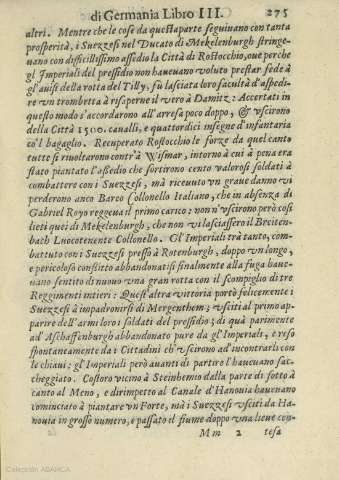 di Germania Libro III. 275
altri. Mentre che le cose da questa parte seguiuano con tanta
prosperità, i Suezzesi nel Ducato di Mekelenburgh stringe-
uano con difficilissimo assedio la Città di Rostocchio, oue perche
gl'Imperiali del pressidio non haueuano voluto prestar fede à
gl'auisi della rotta del Tilly, fu lasciata loro facultà d'aspedi-
re vn trombetta à risaperne il vero à Damitz: Accertati in
questo modo s'accordarono all'arresa poco doppo, & vscirono
della Città 1500. caualli, e quattordici insegne d'infantaria
co'l bagaglio. Recuperato Rostocchio le forze da quel canto
tutte si riuoltarono contr'à Wismar, intorno à cui à pena era
stato piantato l'assedio che sortirono cento valorosi soldati à
combattere con i Suezzesi, mà riceuuto vn graue danno vi
perderono anco Barco Collonello Italiano, che in absenza di
Gabriel Royo reggeua il primo carico: non n'vscirono però così
lieti quei di Mekelenburgh, che non vi lasciassero il Breiten-
bach Luocotenente Collonello. Gl'Imperiali trà tanto, com-
battuto con i Suezzesi presso à Rotenburgh, doppo vn longo,
e pericoloso conflitto abbandonatisi finalmente alla fuga haue-
uano sentito di nuouo vna gran rotta con il scompiglio di tre
Reggimenti intieri: Quest'altra vittoria portò felicemente i
Suezzesi à impadronirsi di Mergenthem; vsciti al primo ap-
parire dell'armi loro i soldati del pressidio; di quà parimente
ad Aschaffenburgh abbandonato pure da gl'Imperiali, e reso
spontaneamente da i Cittadini ch'vscirono ad incontrarli con
le chiaui; gl'Imperiali però auanti di partire l'haueuano sac-
cheggiato. Costoro vicino à Steinhemio dalla parte di sotto à
canto al Meno, e dirimpetto al Canale d'Hanouia haueuano
cominciato à piantare vn Forte, mà i Suezzesi vsciti da Ha-
nouia in grosso numero, e passato il fiume doppo vna lieue con-
Mm 2 tesa
Colección ABANCA